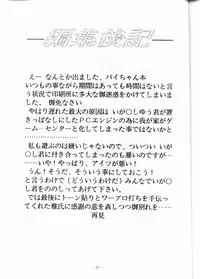 編集後記
えー なんとか出ました、バイちゃん本
いつもの事ながら期間はあっても時間はないと言う
状況で印刷所に多大な御迷惑をかけてしまいまし
た。 御免なさい
やはり遅れた最大の原因は いが〇しゆう君が置き
っぱなしにしたPCエンジンの為に我が家がゲ
ーム・センターと化してしまった事ではないかと…
私も遊ぶのは嫌いじゃないので、ついつい いが〇
し君に付き合ってしまったのも悪いのですが…
……いや! やっぱり、アイツが悪い!
うん! そうだ、そういう事にしておこう!
と言うわけで(どういうわけだ)みんなでいが〇
し君をののしってあげて下さい。
では最後にトーン貼りとワープロ打ちを手伝っ
てくれた雅氏に感謝の意を表しつつ御別れを…
再見